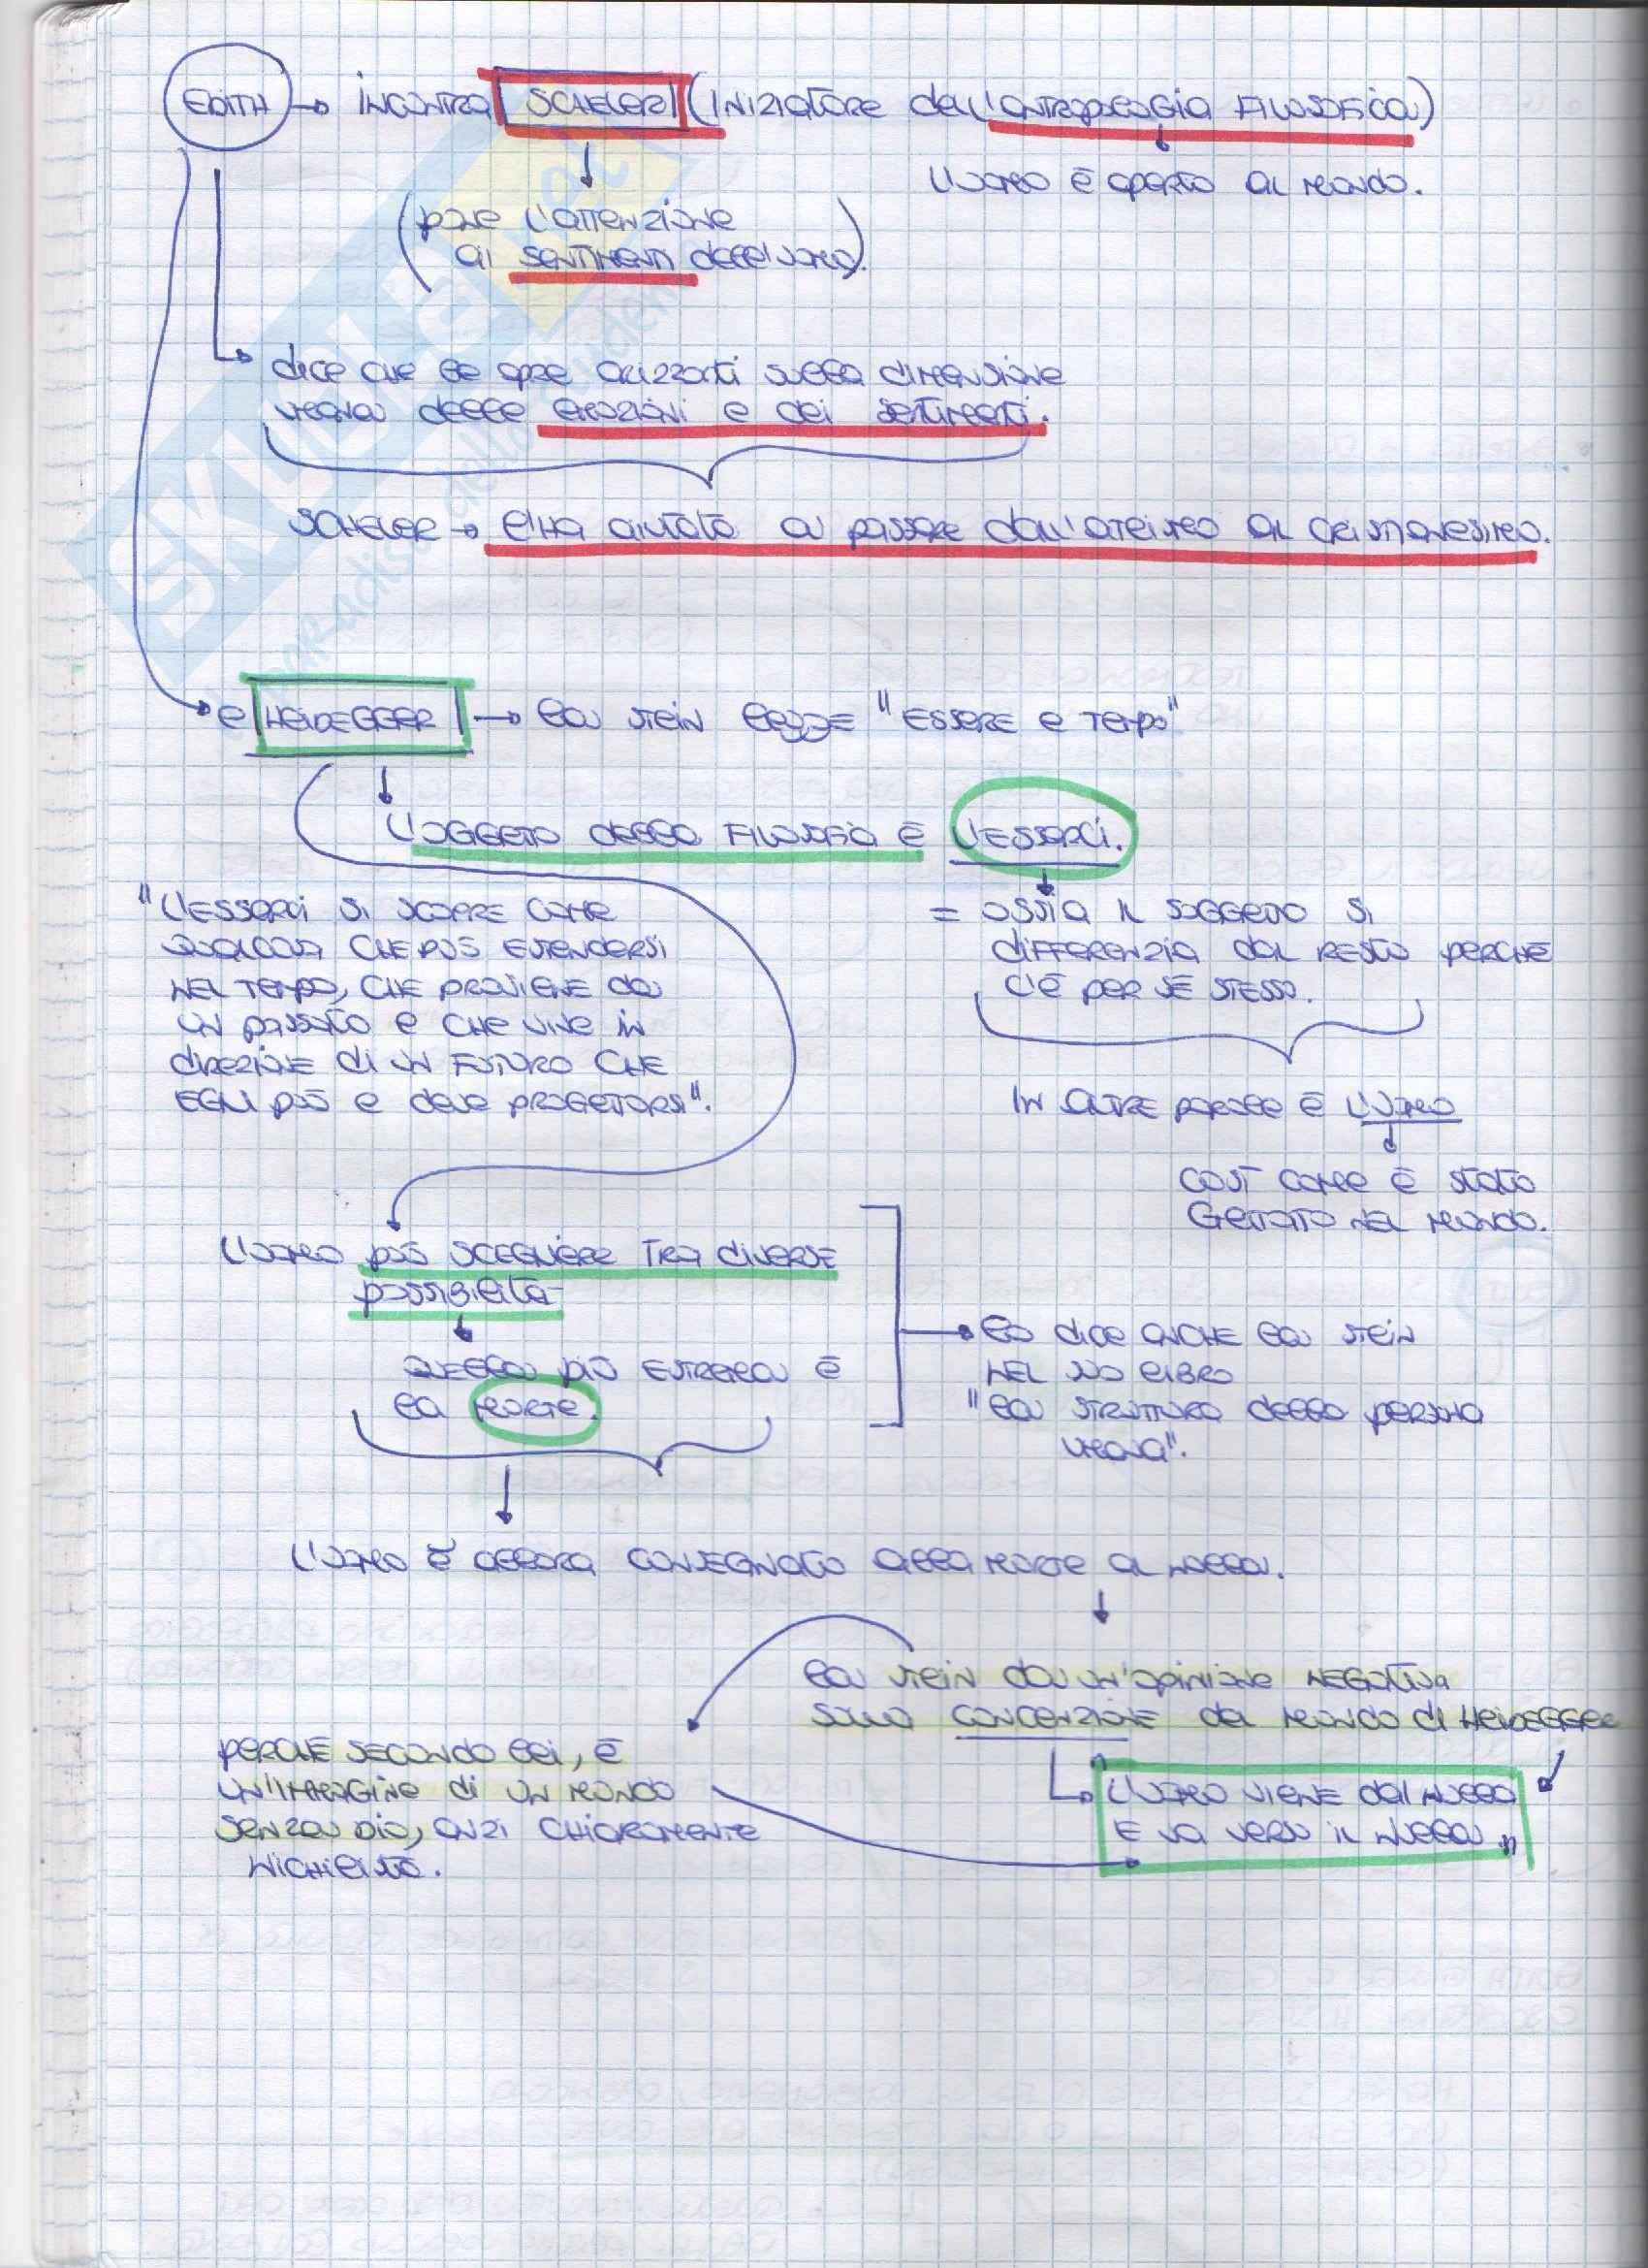 EDITH → INCONTRA SCHELER (INIZIATORE dell'ANTROPOLOGIA FILOSOFICA)
L'UOMO È APERTO AL MONDO.
(pone l'attenzione
ai SENTIMENTI dell'uomo).
dice che le apre orizzonti sulla dimensione
umana delle emozioni e dei sentimenti.
SCHELER → l'HA aiutata a passare dall'ateismo al cristianesimo.
e HEIDEGGER → la Stein legge "ESSERE e TEMPO"
L'OGGETTO della FILOSOFIA È L'ESSERCI.
"L'ESSERCI SI SCOPRE COME
QUALCOSA CHE PUÒ ESTENDERSI
NEL TEMPO, CHE PROVIENE da
UN PASSATO e CHE VIVE IN
direzione di UN FUTURO CHE
EGLI può e deve PROGETTARSI".
= OSSIA IL SOGGETTO SI
differenzia dal RESTO PERCHÉ
C'È PER SÉ STESSO.
IN ALTRE parole È L'UOMO
COSÌ COME È STATO
GETTATO NEL MONDO.
L'UOMO può SCEGLIERE TRA diverse
possibilità
QUELLA più ESTREMA È
la MORTE.
lo dice anche la Stein
NEL SUO libro
"la STRUTTURA della persona
umana".
L'UOMO È allora CONSEGNATO alla morte al nulla.
la Stein da un'opinione NEGATIVA
sulla CONCEZIONE del mondo di HEIDEGGER
PERCHÉ SECONDO lei, È
UN'IMMAGINE di UN mondo
SENZA DIO, anzi CHIARAMENTE
NICHILISTA.
"L'UOMO VIENE dal nulla
E va verso il nulla"
SKUOLA.net